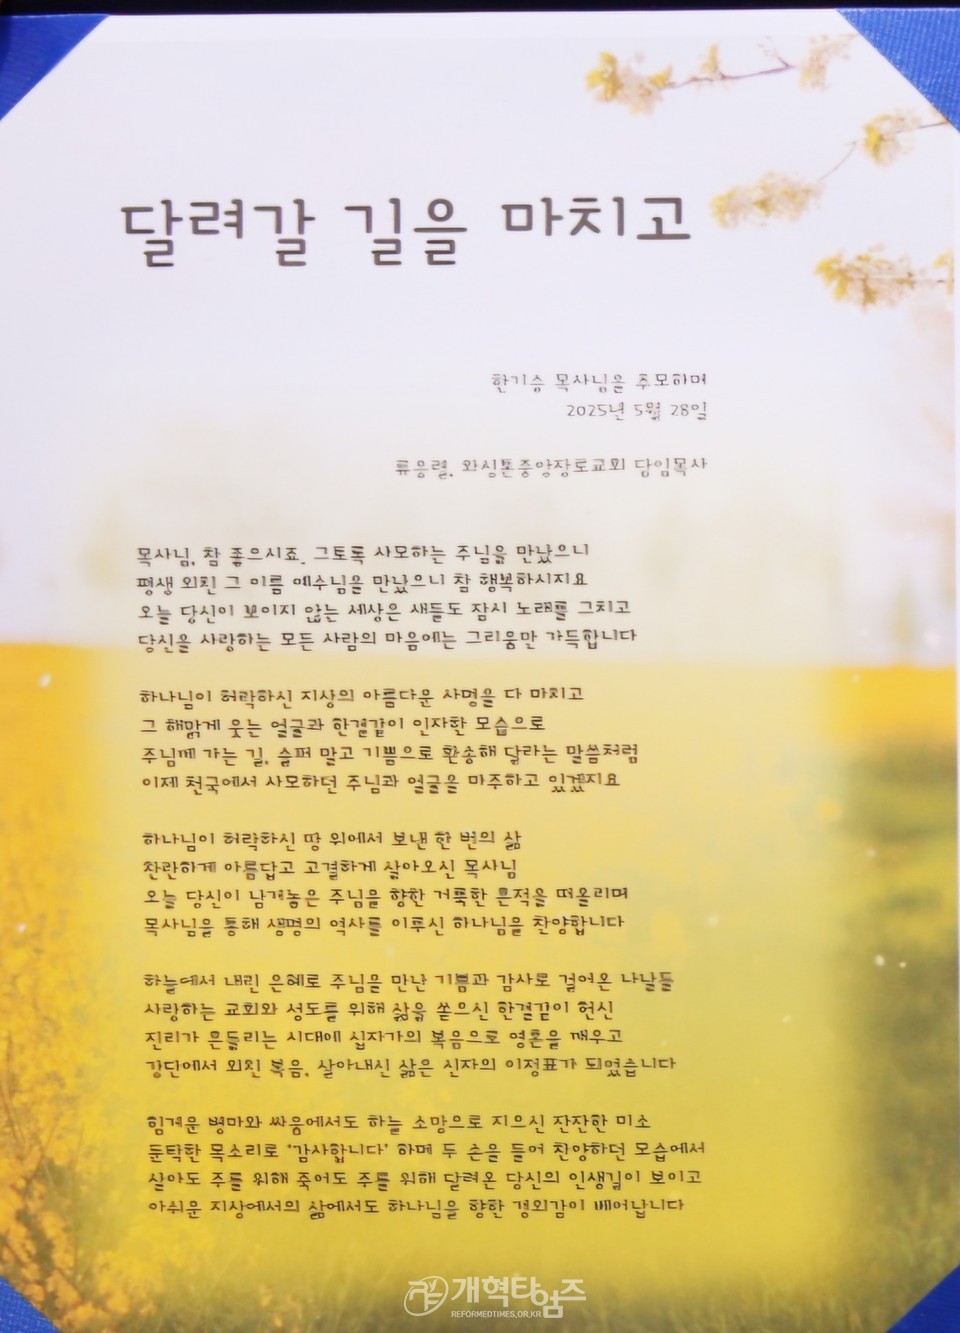 달려갈 길을 마치고
한기승 목사님을 추모하며
2025년 5월 28일
류응렬, 와싱톤중앙장로교회 담임목사
목사님, 참 좋으시죠. 그토록 사모하는 주님을 만났으니
평생 외친 그 이름 예수님을 만났으니 참 행복하시지요
오늘 당신이 보이지 않는 세상은 새들도 잠시 노래를 그치고
당신을 사랑하는 모든 사람의 마음에는 그리움만 가득합니다
하나님이 허락하신 지상의 아름다운 사명을 다 마치고
그 해맑게 웃는 얼굴과 한결같이 인자한 모습으로
주님께 가는 길, 슬퍼 말고 기쁨으로 환송해 달라는 말씀처럼
이제 천국에서 사모하던 주님과 얼굴을 마주하고 있겠지요
하나님이 허락하신 땅 위에서 보낸 한 번의 삶
찬란하게 아름답고 고결하게 살아오신 목사님
오늘 당신이 남겨놓은 주님을 향한 거룩한 흔적을 떠올리며
목사님을 통해 생명의 역사를 이루신 하나님을 찬양합니다
하늘에서 내린 은혜로 주님을 만난 기쁨과 감사로 걸어온 나날들
사랑하는 교회와 성도를 위해 삶을 쏟으신 한결같이 헌신
진리가 흔들리는 시대에 십자가의 복음으로 영혼을 깨우고
강단에서 외친 복음, 살아내신 삶은 신자의 이정표가 되었습니다
힘겨운 병마와 싸움에서도 하늘 소망으로 지으신 잔잔한 미소
둔탁한 목소리로 '감사합니다' 하며 두 손을 들어 찬양하던 모습에서
살아도 주를 위해 죽어도 주를 위해 달려온 당신의 인생길이 보이고
아쉬운 지상에서의 삶에서도 하나님을 향한 경외감이 베어납니다
개혁타임즈
REFORMEDTIMES.OR.KR